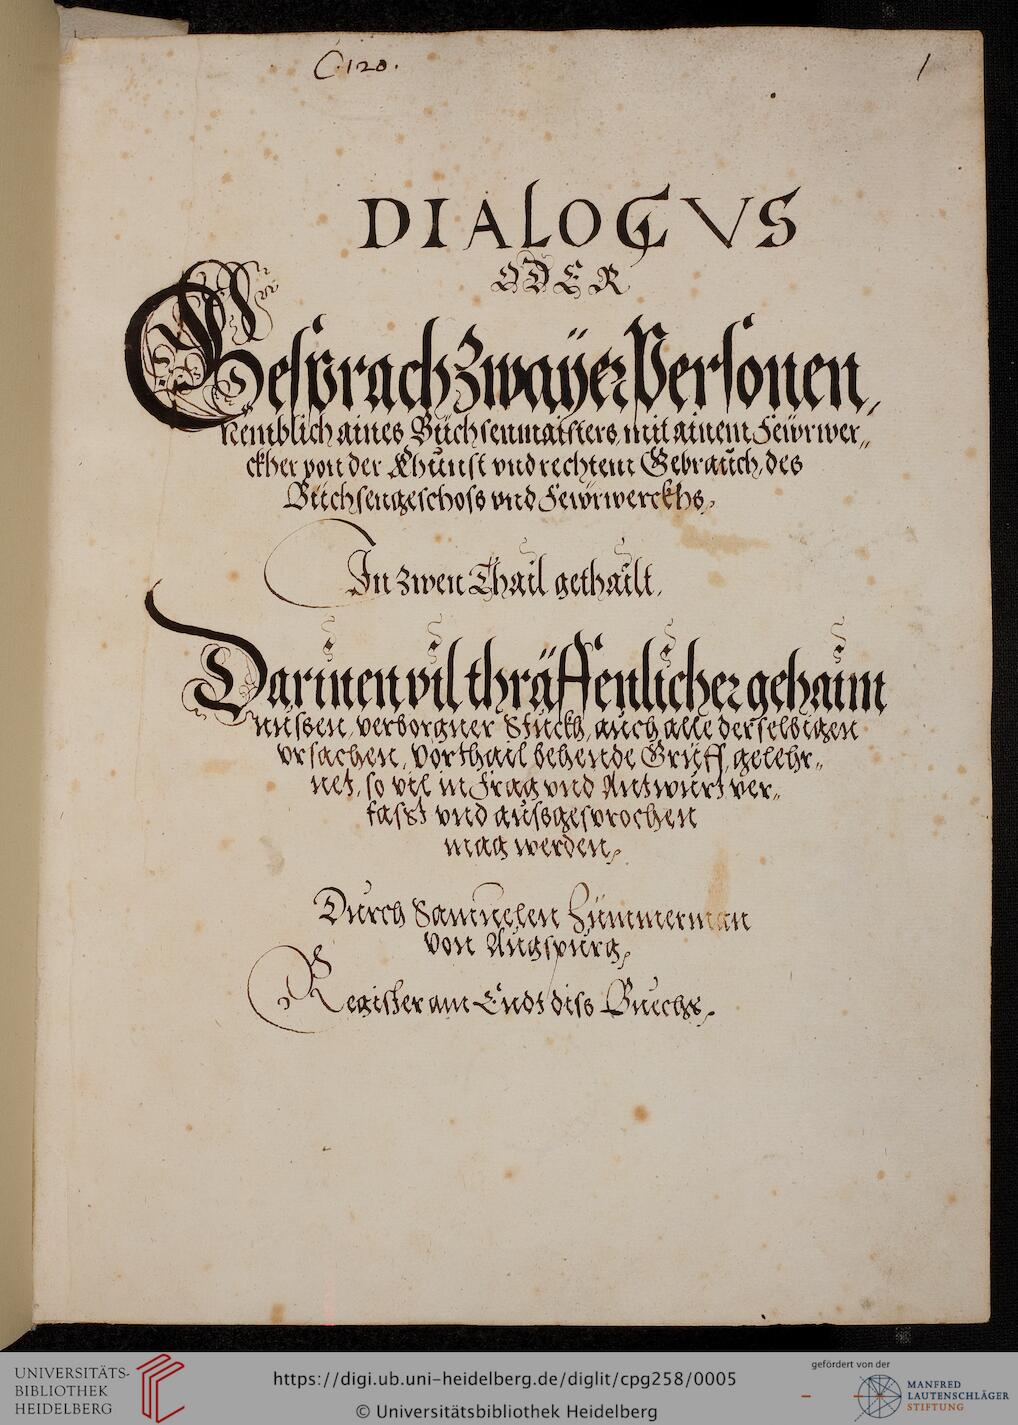 C. 120.
1
DIALOGVS
ODER
Gesprach Zwaÿer Personen,
Nemblich aines Büchsenmaisters, mit ainem Feẅrwer„
ckher von der Khunst vnd rechtem Gebraŭch, des
Büchsengeschoss vnd Feẅrwerckhs,
In zwen Thail gethailt,
Darinen vil thräffenlicher gehaim
nussen, verborgner Stückh, aŭch alle derselbigen
vrsachen, Vorthail behende Griff, gelehr„
net, so vil in Frag vnd Antwŭrt ver„
fasst vnd aŭssgesprochen
mag werden,
Dŭrch Samŭelen Zimmerman
Von Aŭgspŭrg,
Register am Endt diss Buechs,
UNIVERSITÄTS-
BIBLIOTHEK
HEIDELBERG
https://digi.ub.uni-heidelberg.de/diglit/cpg258/0005
© Universitätsbibliothek Heidelberg
gefördert von der
MANFRED
LAUTENSCHLÄGER
STIFTUNG